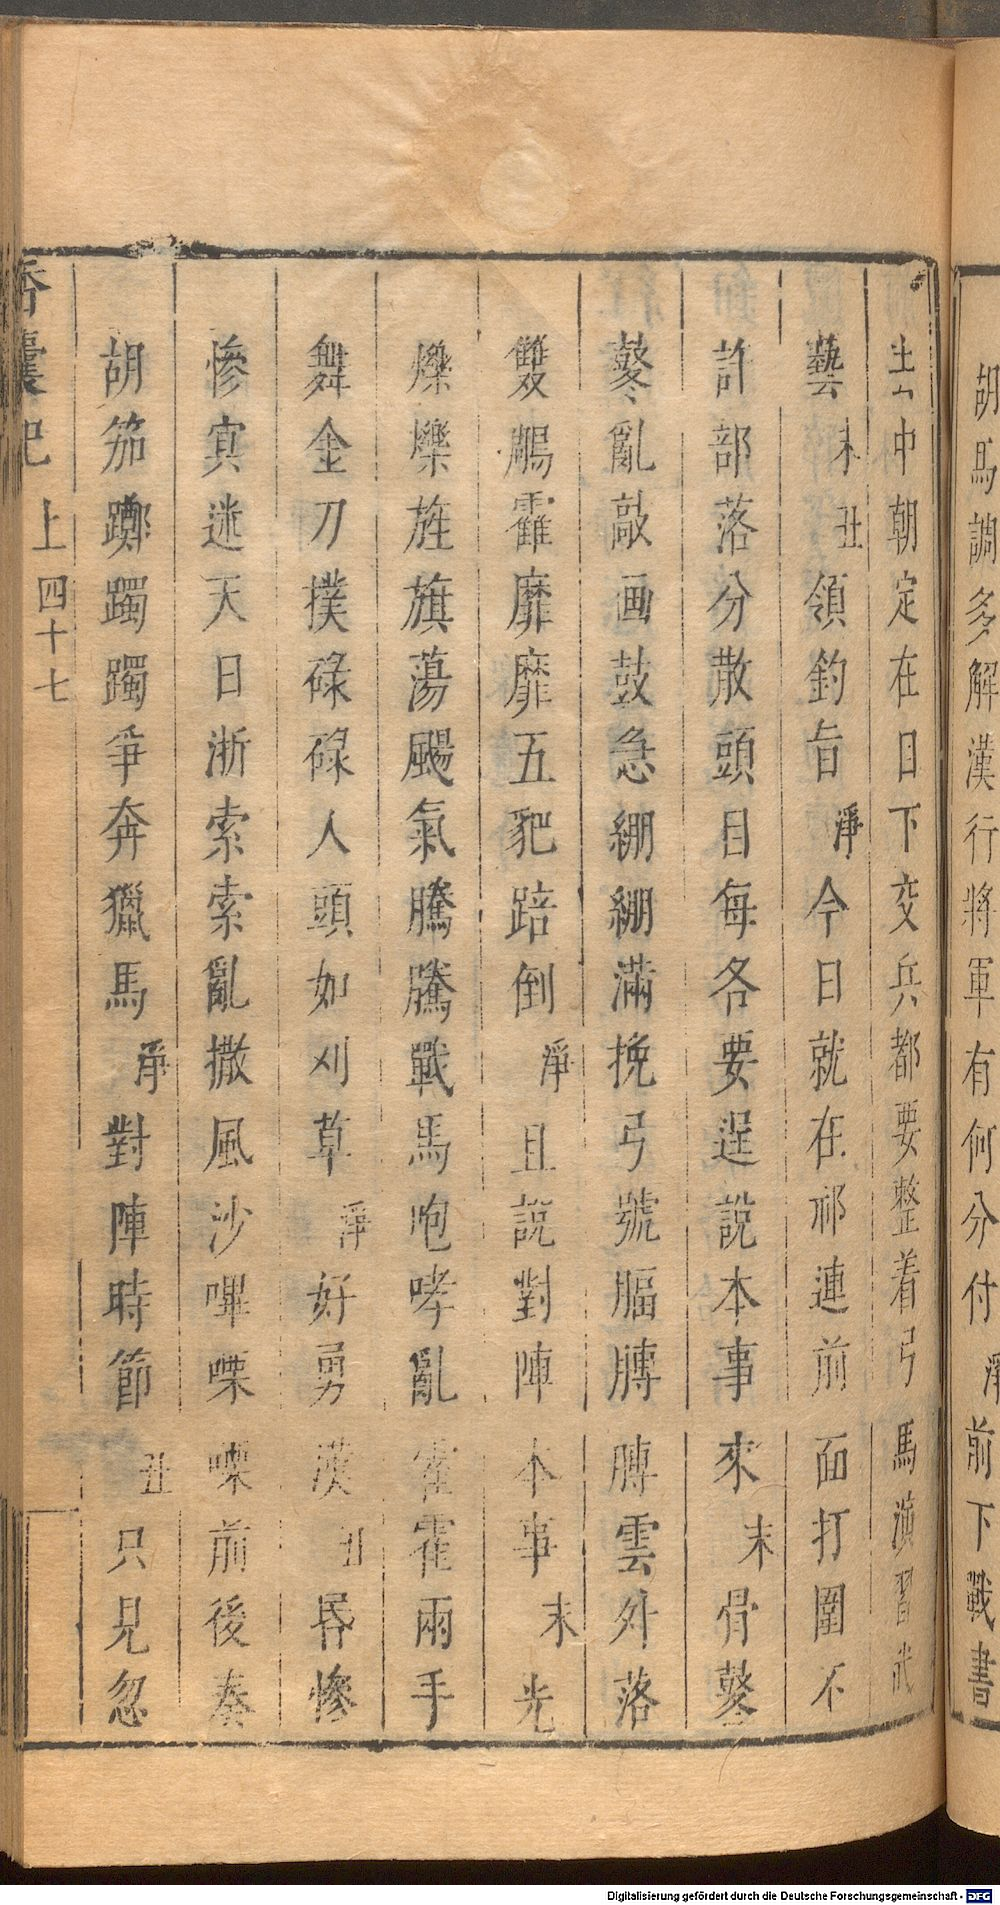 胡馬調多解漢行將軍有何分付淨前下戰書
去中朝定在日下交兵都要整着弓馬演習武
藝末丑領鈞旨淨今日就在祁連前面打圍不
許部落分散頭目每各要逞說本事來末骨鼕
鼕亂敲画鼓急綳綳滿挽弓號腷膊膊雲外落
雙鵰霍靡靡五豝踣倒淨且說對陣本事末光
爍爍旌旗蕩颺氣騰騰戰馬咆哮亂霍霍兩手
舞金刀撲碌碌人頭如刈草淨好勇漢丑昏慘
慘寘迷天日浙索索亂撒風沙嗶㗚㗚前後奏
胡笳躑躅躅爭奔獵馬淨對陣時節丑只見忽
香囊記 上 四十七
Digitalisierung gefördert durch die Deutsche Forschungsgemeinschaft - DFG